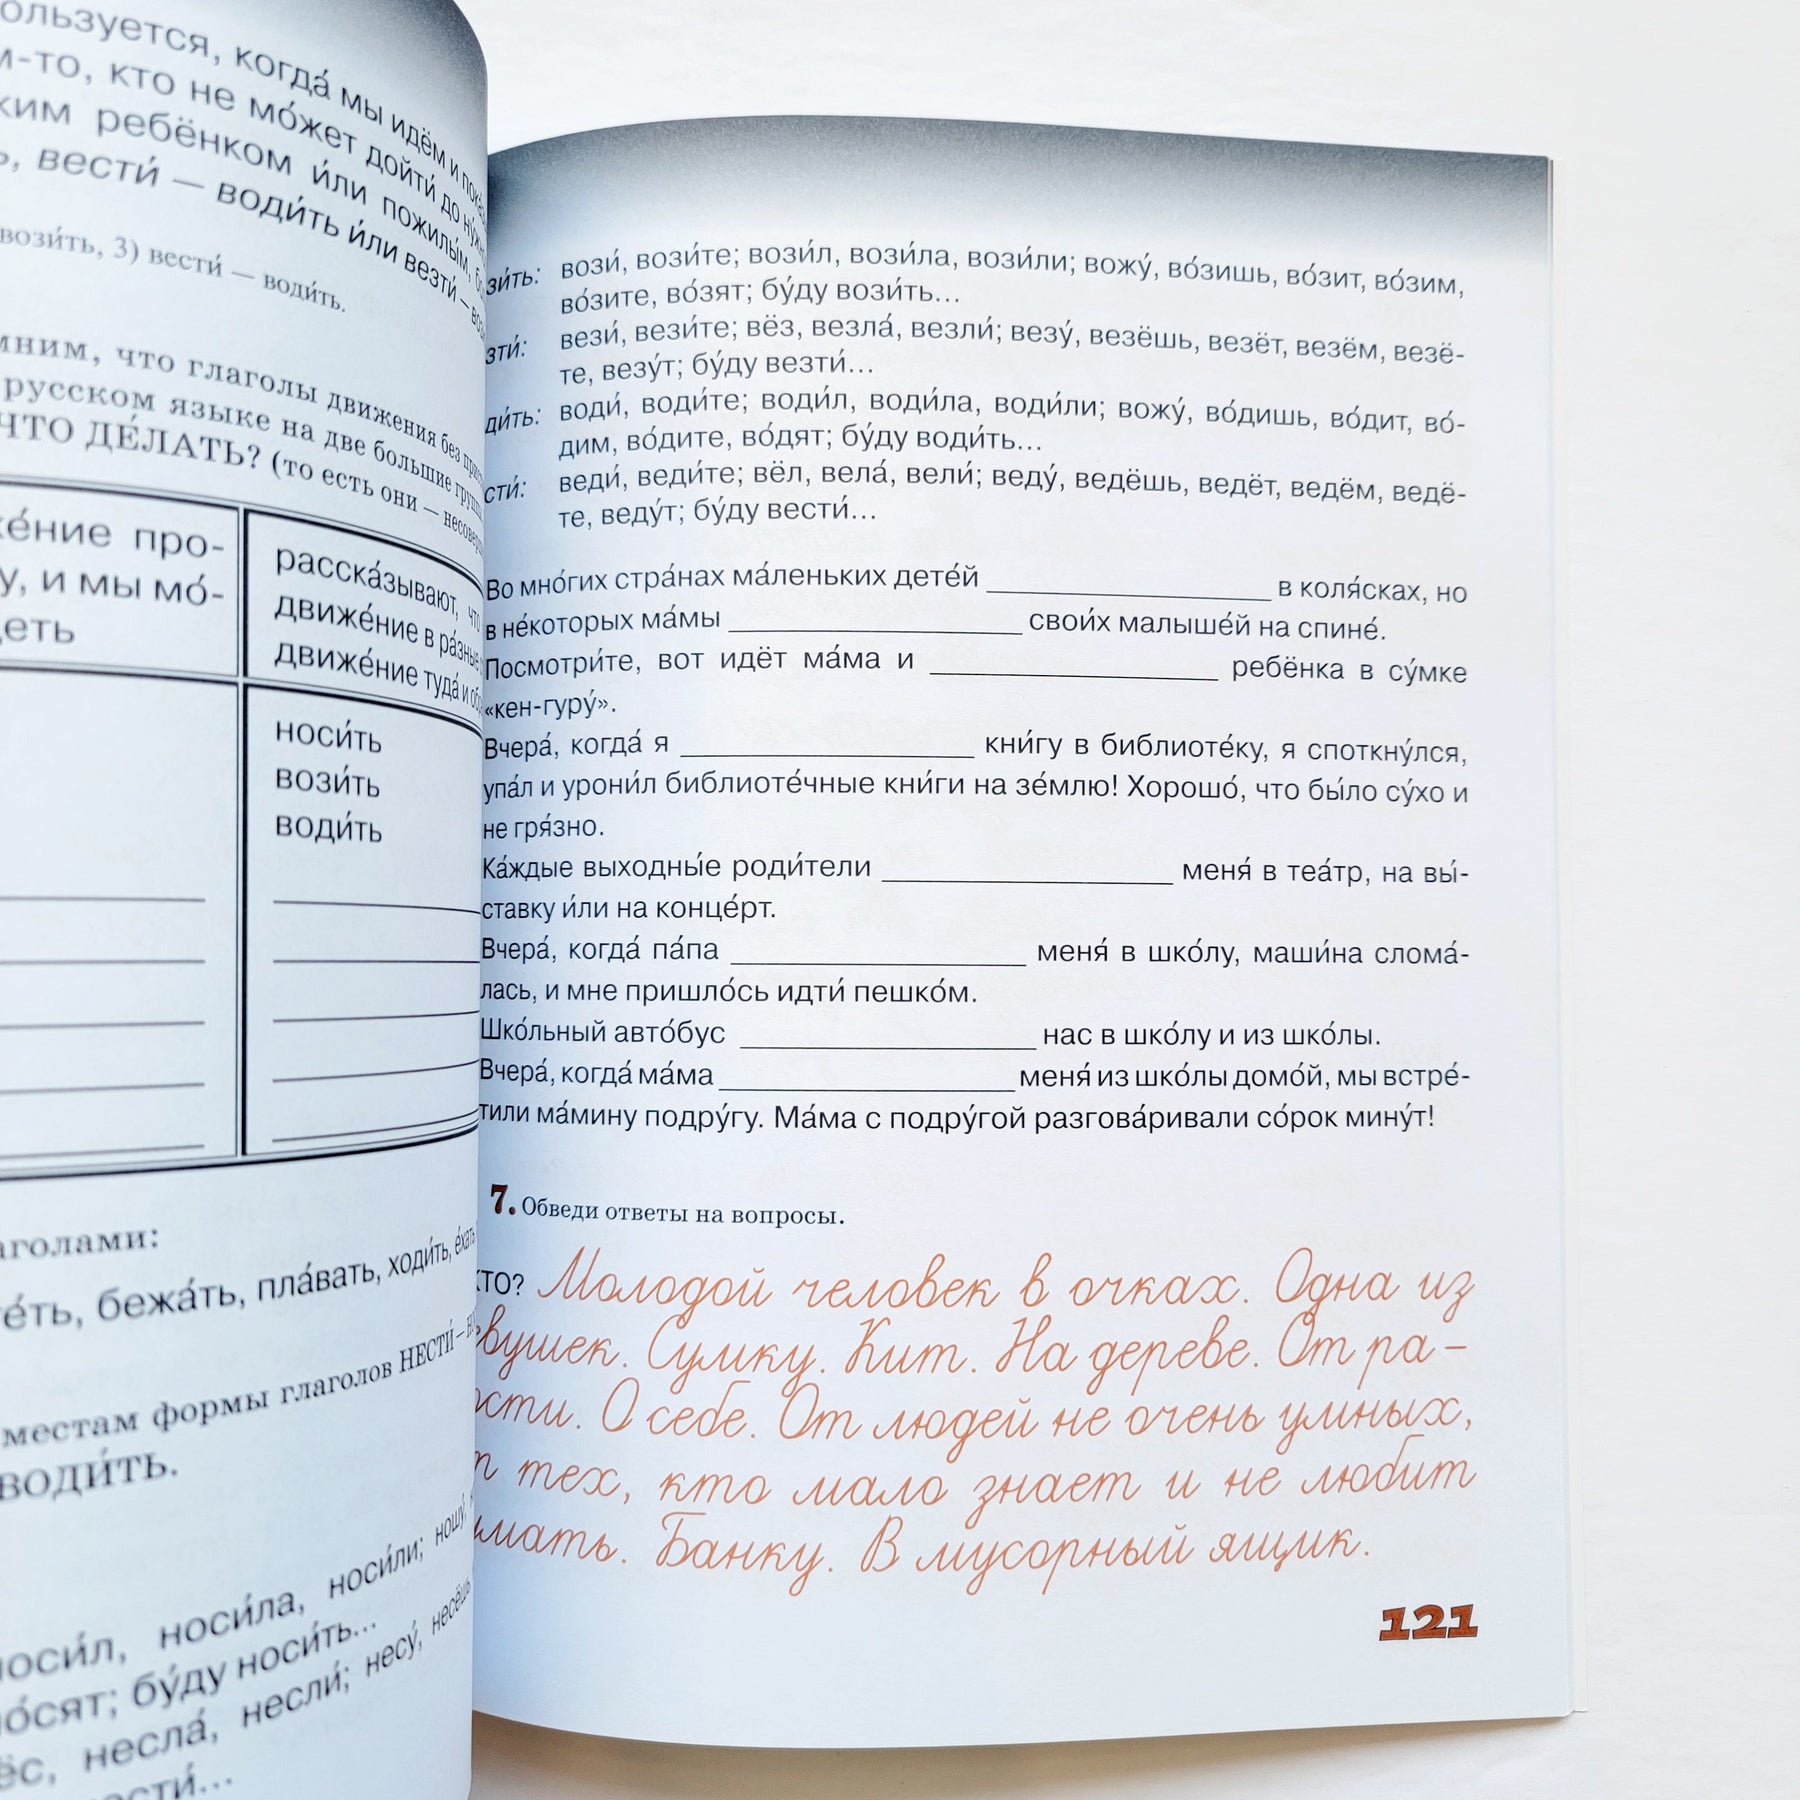 когда́ мы идём и
м-то, кто не мо́жет дойти́ до
ребёнком и́ли пожилы́м,
вести́ — води́ть и́ли везти́ —
вози́ть, 3) вести́ — води́ть.
что глаголы движения без
русском языке на две большие группы
ЧТО ДЕ́ЛАТЬ? (то есть они —
про-
у, и мы мо́-
расска́зывают, что
движе́ние в ра́зные
движе́ние туда́ и
носи́ть
вози́ть
води́ть
бежа́ть, пла́вать, ходи́ть, е́хать
местам формы глаголов НЕСТИ́ –
ВОДИ́ТЬ.
носи́л, носи́ла, носи́ли; ношу́,
но́сят; бу́ду носи́ть...
несла́, несли́; несу́, несёшь
вози́, вози́те; вози́л, вози́ла, вози́ли; вожу́, во́зишь, во́зит, во́зим,
во́зите, во́зят; бу́ду вози́ть...
вези́, вези́те; вёз, везла́, везли́; везу́, везёшь, везёт, везём, везё-
те, везу́т; бу́ду везти́...
води́, води́те; води́л, води́ла, води́ли; вожу́, во́дишь, во́дит, во́-
дим, во́дите, во́дят; бу́ду води́ть...
веди́, веди́те; вёл, вела́, вели́; веду́, ведёшь, ведёт, ведём, ведё-
те, веду́т; бу́ду вести́...
Во мно́гих стра́нах ма́леньких дете́й ____ в коля́сках, но
в не́которых ма́мы ____ свои́х малыше́й на спине́.
Посмотри́те, вот идёт ма́ма и ____ ребёнка в су́мке
«кен-гуру́».
Вчера́, когда́ я ____ кни́гу в библиоте́ку, я споткну́лся,
упа́л и урони́л библиоте́чные кни́ги на зе́млю! Хорошо́, что бы́ло су́хо и
не гря́зно.
Ка́ждые выходны́е роди́тели ____ меня́ в теа́тр, на вы́-
ставку и́ли на конце́рт.
Вчера́, когда́ па́па ____ меня́ в шко́лу, маши́на слома́-
лась, и мне пришло́сь идти́ пешко́м.
Шко́льный авто́бус ____ нас в шко́лу и из шко́лы.
Вчера́, когда́ ма́ма ____ меня́ из шко́лы домо́й, мы встре́-
тили ма́мину подру́гу. Ма́ма с подру́гой разгова́ривали со́рок мину́т!
7. Обведи ответы на вопросы.
КТО? Молодой человек в очках. Одна из
вушек. Сумку. Кит. На дереве. От ра-
ости. О себе. От людей не очень умных,
т тех, кто мало знает и не любит
мать. Банку. В мусорный ящик.
121